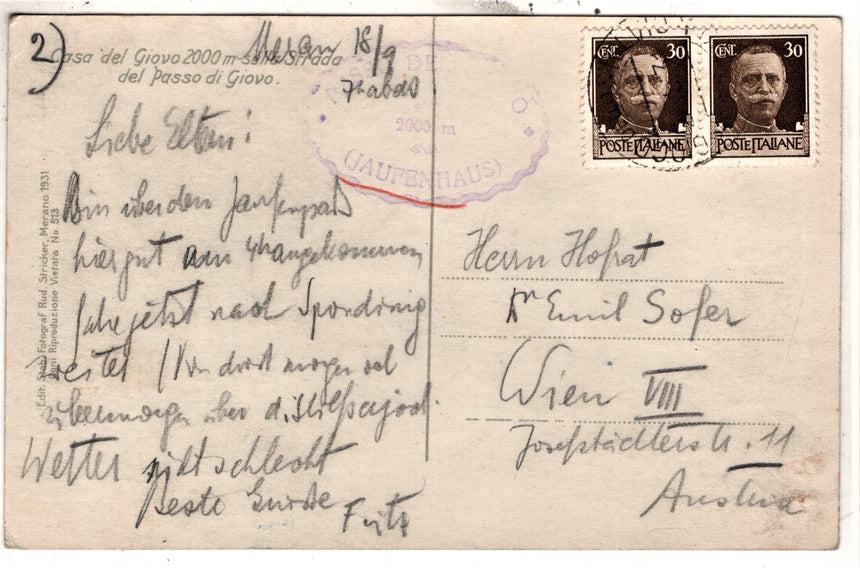 2)
Casa del Giovo 2000 m sulla Strada
del Passo di Giovo.
Meran 18/9
7h abds
Liebe Eltern!
Bin über den Jaufenpaß
hier gut um 4h angekommen,
fahre jetzt nach Spondinig
weiter / Von dort morgen od
übermorgen über d. Stilfserjoch.
Wetter nicht schlecht
Beste Grüße
Fritz
Edit. Stab. Fotograf Rud. Stricker, Merano 1931
Ogni Riproduzione Vietata No. 513
2000 m
(JAUFENHAUS)
CENT. 30
POSTE ITALIANE
CENT. 30
POSTE ITALIANE
Herrn Hofrat
Dr Emil Sofer
Wien VIII
Josefstädterstr. 11
Austria